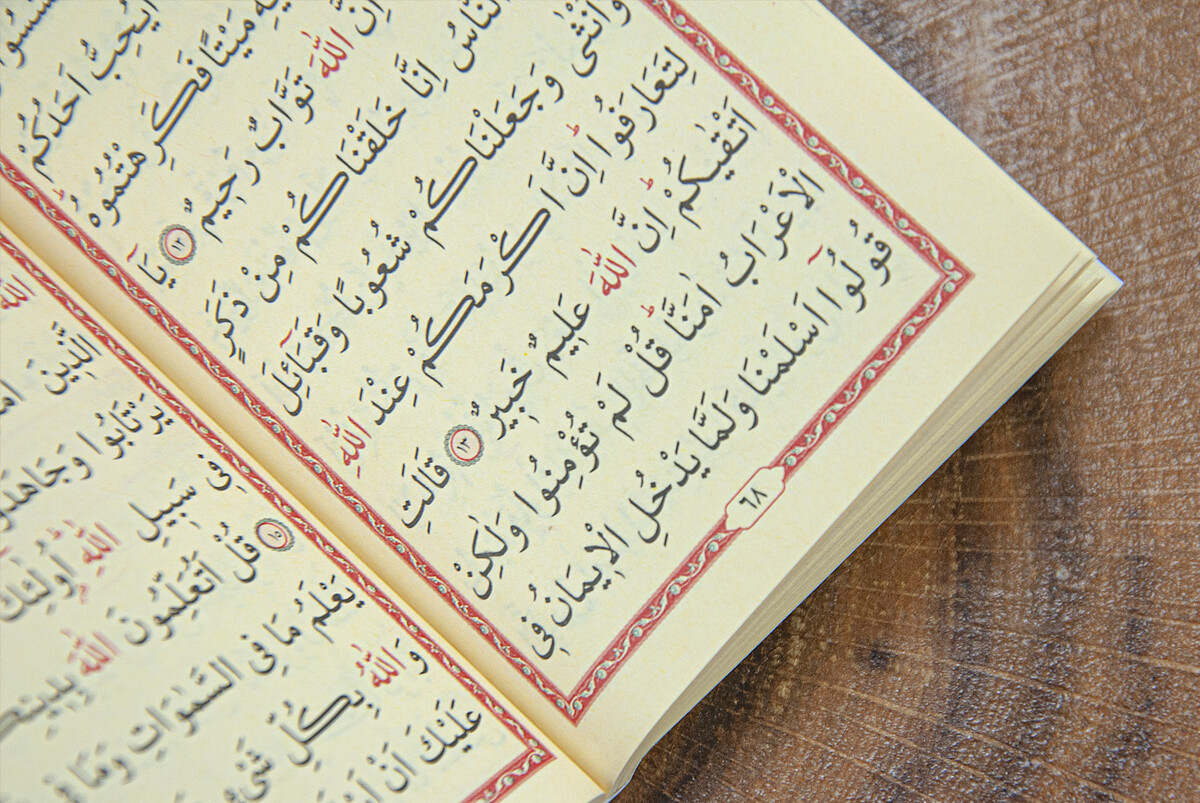 يُحِبُّ اَحَدُكُمْ
مَيْتًا فَكَرِهْتُمُوهُ
اِنَّ اللّٰهَ تَوَّابٌ رَح۪يمٌ ١٢ يَٓا
النَّاسُ اِنَّا خَلَقْنَاكُمْ مِنْ ذَكَرٍ
وَاُنْثٰى وَجَعَلْنَاكُمْ شُعُوبًا وَقَبَٓائِلَ
لِتَعَارَفُواۜ اِنَّ اَكْرَمَكُمْ عِنْدَ اللّٰهِ
اَتْقٰيكُمْۜ اِنَّ اللّٰهَ عَل۪يمٌ خَب۪يرٌ ١٣ قَالَتِ
الْاَعْرَابُ اٰمَنَّاۜ قُلْ لَمْ تُؤْمِنُوا وَلٰكِنْ
قُولُٓوا اَسْلَمْنَا وَلَمَّا يَدْخُلِ الْا۪يمَانُ ف۪ي
٦٨
اللّٰهَ
الَّذ۪ينَ
يَرْتَابُوا وَجَاهَدُوا
ف۪ي سَب۪يلِ اللّٰهِۜ اُو۬لٰٓئِكَ
١٥ قُلْ اَتُعَلِّمُونَ اللّٰهَ بِد۪ينِكُمْ
يَعْلَمُ مَا فِي السَّمٰوَاتِ وَمَا فِي
وَاللّٰهُ بِكُلِّ شَيْءٍ
عَلَيْكَ اَنْ